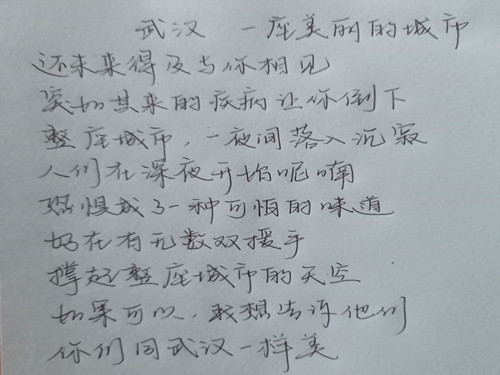 武汉 一座美丽的城市
还未来得及与你相见
突如其来的疾病让你倒下
整座城市，一夜间落入沉寂
人们在深夜开始呢喃
恐惧成了一种可怕的味道
好在有无数双援手
撑起整座城市的天空
如果可以，我想告诉他们
你们同武汉一样美